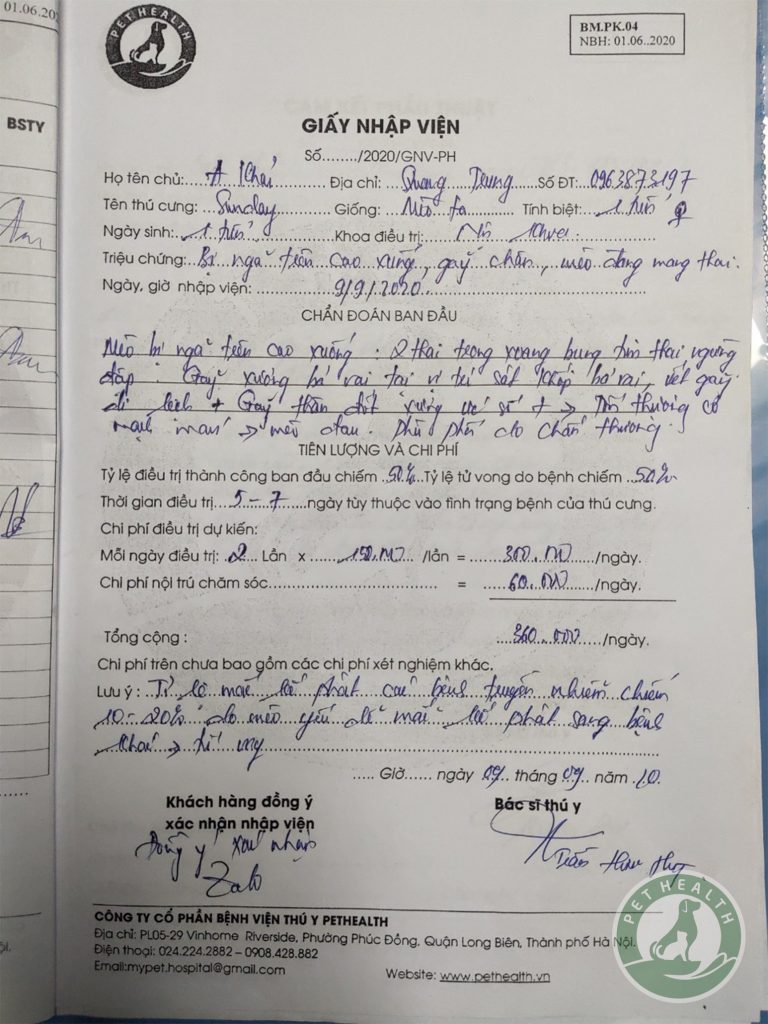 01.06.20
BSTY
PET HEALTH
BM.PK.04
NBH: 01.06..2020
GIẤY NHẬP VIỆN
Số......../2020/GNV-PH
Họ tên chủ: A Khải Địa chỉ: Quang Trung Số ĐT: 0963873197
Tên thú cưng: Sunday Giống: Mèo ta Tính biệt: 1 tuổi ♀
Ngày sinh: 1 tuổi Khoa điều trị: Nội khoa
Triệu chứng: Bị ngã trên cao xuống, gãy chân, mèo đang mang thai.
Ngày, giờ nhập viện: 9/9/2020
CHẨN ĐOÁN BAN ĐẦU
Mèo bị ngã trên cao xuống: 2 thai trong xoang bụng tim thai ngừng
đập. Gãy xương bả vai tại vị trí sát khớp bả vai, vết gãy
di lệch + Gãy thân đốt xương → Tổn thương
mạch máu → mèo đau. phù do chấn thương.
TIÊN LƯỢNG VÀ CHI PHÍ
Tỷ lệ điều trị thành công ban đầu chiếm 50% Tỷ lệ tử vong do bệnh chiếm 50%
Thời gian điều trị 5-7 ngày tùy thuộc vào tình trạng bệnh của thú cưng.
Chi phí điều trị dự kiến:
Mỗi ngày điều trị: 2 Lần x 150.000 /lần = 300.000 /ngày.
Chi phí nội trú chăm sóc = 60.000 /ngày.
Tổng cộng : 360.000 /ngày.
Chi phí trên chưa bao gồm các chi phí xét nghiệm khác.
Lưu ý : Tỉ lệ phát các bệnh truyền nhiễm chiếm
10-20% do mèo yếu dễ phát sang bệnh
khác → tử vong
..... Giờ...... ngày 09 tháng 09 năm 20.
Khách hàng đồng ý
xác nhận nhập viện
Bác sĩ thú y
Đồng ý xác nhận
Zalo
Trần
CÔNG TY CỔ PHẦN BỆNH VIỆN THÚ Y PETHEALTH
Địa chỉ: PL05-29 Vinhome Riverside, Phường Phúc Đồng, Quận Long Biên, Thành phố Hà Nội.
Điện thoại: 024.224.2882 – 0908.428.882
Email:mypet.hospital@gmail.com Website: www.pethealth.vn
PET HEALTH